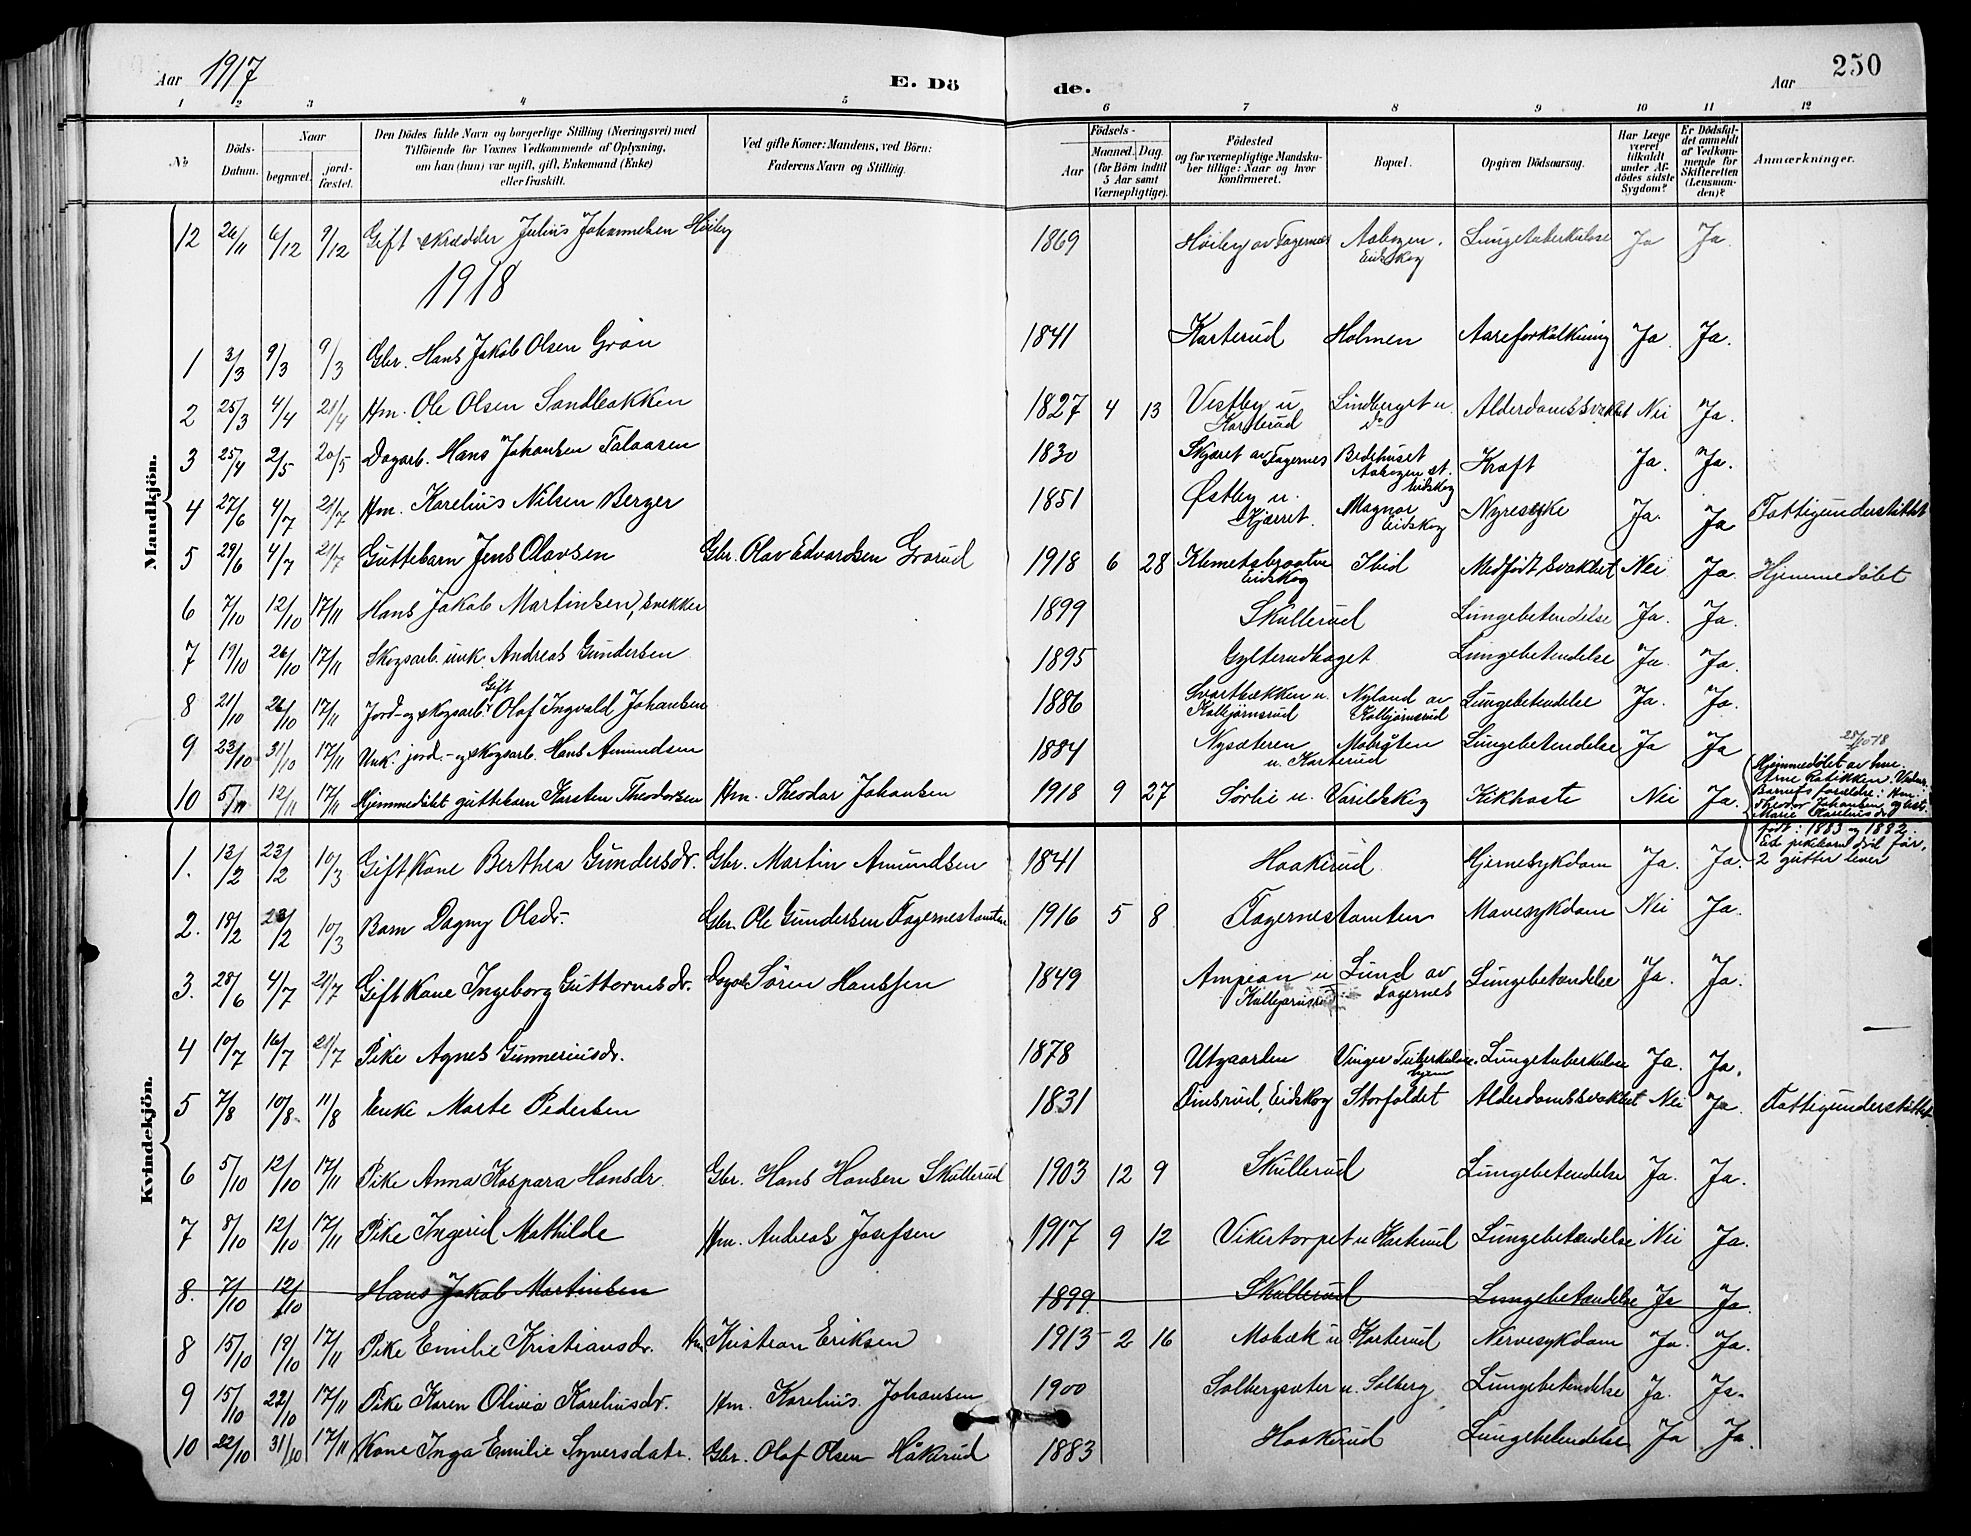 Aar 1917
E. Dö
de.
Aar
250
1 2 3 4 5 6 7 8 9 10 11 12
№
Döds-Datum.
Naar
begravet.
jord-fæstet.
Den Dödes fulde Navn og borgerlige Stilling (Næringsvei) med
Tilföiende for Voxnes Vedkommende af Oplysning,
om han (hun) var ugift, gift, Enkemand (Enke)
eller fraskilt.
Ved gifte Koner: Mandens, ved Börn:
Faderens Navn og Stilling.
Födsels-
Aar
Maaned. Dag.
(for Börn indtil
5 Aar samt
Værnepligtige).
Födested
og for værnepligtige Mandska-
ber tillige: Naar og hvor
konfirmeret.
Bopæl.
Opgiven Dödsaarsag.
Har Læge
været
tilkaldt
under Af-
dödes sidste
Sygdom?
Er Dödsfal-
det anmeldt
af Vedkom-
mende for
Skifteretten
(Lensman-
den)?
Anmærkninger.
Mandkjön.
12 26/11 6/12 9/12 Gift skrædder Julius Johannesen Høiby 1869 Høiby av Fagernes Aabogen, Eidskog Lungetuberkulose Ja Ja.
1918
1 3/3 9/3 9/3 Gbr. Hans Jakob Olsen Grøn 1841 Karterud Holmen Aareforkalkning Ja. Ja.
2 25/3 4/4 21/4 Hm. Ole Olsen Sandbakken 1827 4 13 Vestby u Karterud Lindberget u. Do Alderdomssvakhet Nei Ja.
3 25/4 2/5 20/5 Dagarb. Hans Johansen Talaasen 1830 Skjæret av Fagernes Bedehuset Aabogen st. Eidskog Kræft Ja. Ja.
4 27/6 4/7 21/7 Hm. Karelius Nilsen Berger 1851 Østby u. Kjærret. Magnor Eidskog Nyresyke Ja. Ja Fattigunderstøttet
5 29/6 4/7 21/7 Guttebarn Jens Olavsen Gbr. Olav Edvardsen Grorud 1918 6 28 Klemetsbraaten Eidskog Ibid Medfødt svakhet Nei Ja. Hjemmedøbt
6 7/10 12/10 17/11 Hans Jakob Martinsen, snekker 1899 Skullerud Lungebetendelse Ja. Ja.
7 19/10 26/10 17/11 Skogsarb. unk. Andreas Gundersen 1895 Gylterudhaget Lungebetendelse Ja. Ja.
8 21/10 26/10 17/11 Jord- og skogsarb. Gift Olaf Ingvald Johansen 1886 Svartbækken u. Kolbjørnsrud Nyland av Kolbjørnsrud Lungebetendelse Ja. Ja.
9 23/10 31/10 17/11 Unk. jord- og skogsarb. Hans Amundsen 1884 Nysæteren u. Karterud Lungebetendelse Ja Ja
10 5/11 12/11 17/11 Hjemmedøbt guttebarn Karsten Theodorsen Hm. Theodor Johansen 1918 9 27 Sørlie u. Varildskog Kikhoste Nei Ja.
Hjemmedøbt av hm.
Barnets forældre: Hm.
Theodor Johansen og
Marie Kareliusdr.
født: 1883 og 1882.
Et pikebarn død før,
2 gutter lever
Kvindekjön.
1. 13/2 23/2 10/3 Gift Kone Berthea Gundersdr. Gbr. Martin Amundsen 1841 Haakerud Hjernesykdom Ja. Ja.
2. 18/2 23/2 10/3 Barn Dagny Olsdr. Gbr. Ole Gundersen Fagernestomten 1916 5 8 Fagernestomten Mavesykdom Nei Ja.
3. 28/6 4/7 21/7 Gift Kone Ingeborg Guttormsdr. Dagarb. Søren Hanssen 1849 Ampian u Kolbjørnsrud Lund av Fagernes Lungebetændelse Ja. Ja.
4 10/7 16/7 21/7 Pike Agnes Gunneriusdr. 1878 Utgaarden Vinger Tuberkulosehjem Lungetuberkulose Ja. Ja.
5 7/8 10/8 11/8 Enke Marte Pedersen 1831 Finsrud, Eidskog Storfaldet Alderdomssvakhet Nei Ja. Fattigunderstøttet
6 5/10 12/10 17/11 Pike Anna Kaspara Hansdr. Gbr. Hans Hansen Skullerud 1903 12 9 Skullerud Lungebetendelse Ja. Ja.
7 8/10 12/10 17/11 Pike Ingerid Mathilde Hm. Andreas Josefsen 1917 9 12 Vikertorpet u Karterud Lungebetændelse Nei Ja.
8. 7/10 12/10 Hans Jakob Martinsen 1899 Skullerud Lungebetændelse Ja Ja.
8 15/10 19/10 17/11 Pike Emilie Kristiansdr. Hm Kristian Eriksen 1913 2 16 Mobæk u Karterud Nervesykdom Ja. Ja.
9 15/10 22/10 17/11 Pike Karen Olivia Kareliusdr. Hm. Karelius Johansen 1900 Solbergsæter u. Solberg Lungebetendelse Ja. Ja.
10 22/10 31/10 17/11 Kone Inga Emilie Syversdatr. Gbr. Olaf Olsen Håkerud 1883 Haakerud Lungebetendelse Ja Ja.